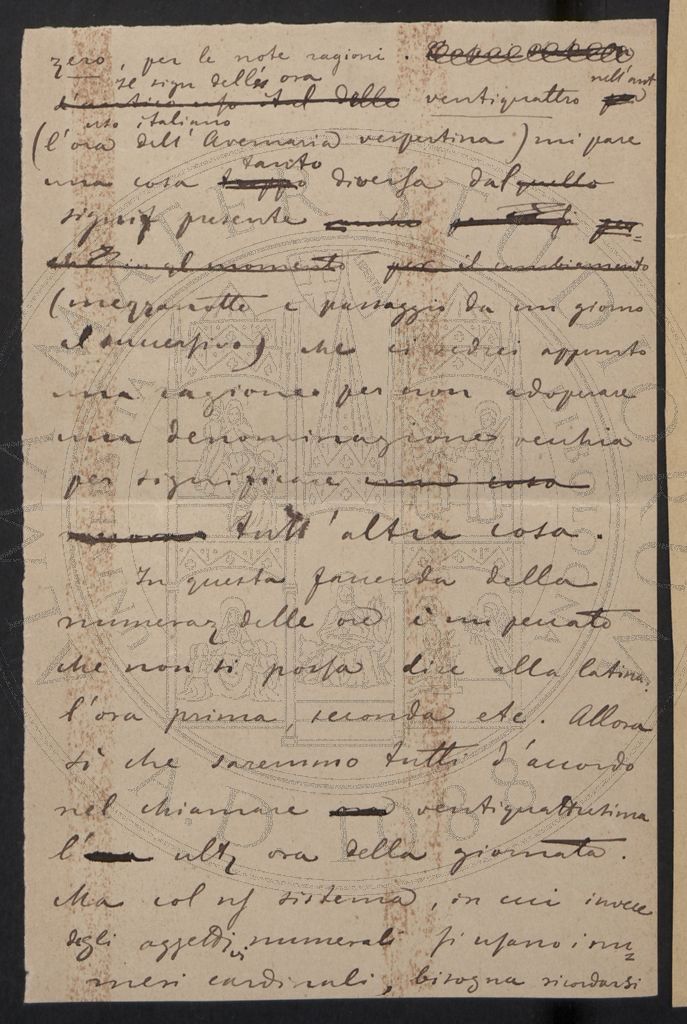 zero, per le note ragioni.
Il sign dell' ora nell'ant
d'antico uso ital delle ventiquattro
uso italiano
(l'ora dell' Avemaria vespertina) mi pare
tanto
una cosa troppo diversa dal quello
signif presente
in quel momento per il cambiamento
(mezzanotte e passaggio da un giorno
al successivo) che ci vedrei appunto
una ragione per non adoperare
una denominazione vecchia
per significare una cosa
tutt'altra cosa.
In questa faccenda della
numeraz delle ore è un peccato
che non si possa dire alla latina:
l'ora prima, seconda etc. Allora
sì che saremmo tutti d'accordo
nel chiamare ora ventiquattresima
l' ultz ora della giornata.
Ma col ns sistema, in cui invece
degli aggettivi numerali si usano i nu=
meri cardinali, bisogna ricordarsi